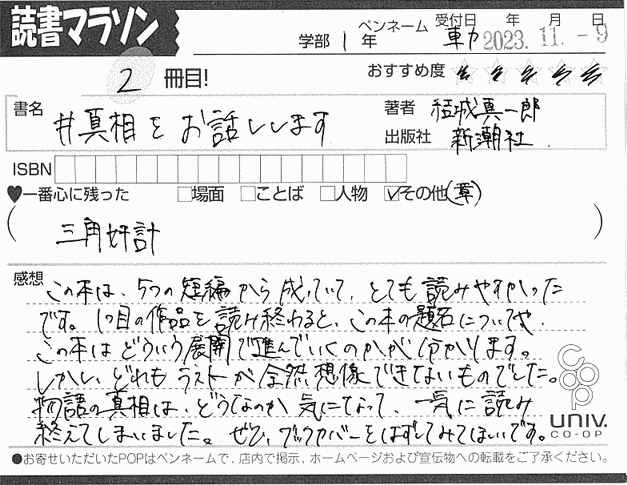 読書マラソン
学部 1 年 ペンネーム 受付日 年 月 日
2023.11.-9
2 冊目! おすすめ度 ★★★★★
書名 #真相をお話しします
著者 結城真一郎
出版社 新潮社
ISBN
♥一番心に残った □場面 □ことば □人物 ☑その他(章)
(三角奸計)
感想
この本は、5つの短編から成っていて、とても読みやすかった
です。1つ目の作品を読み終わると、この本の題名についてや、
この本はどういう展開で進んでいくのかが分かります。
しかし、どれもラストが全然想像できないものでした。
物語の真相は、どうなのか気になって、一気に読み
終えてしまいました。ぜひ、ブックカバーをはずしてみてほしいです。
coop
UNIV.
CO-OP
●お寄せいただいたPOPはペンネームで、店内で掲示、ホームページおよび宣伝物への転載をご了承ください。